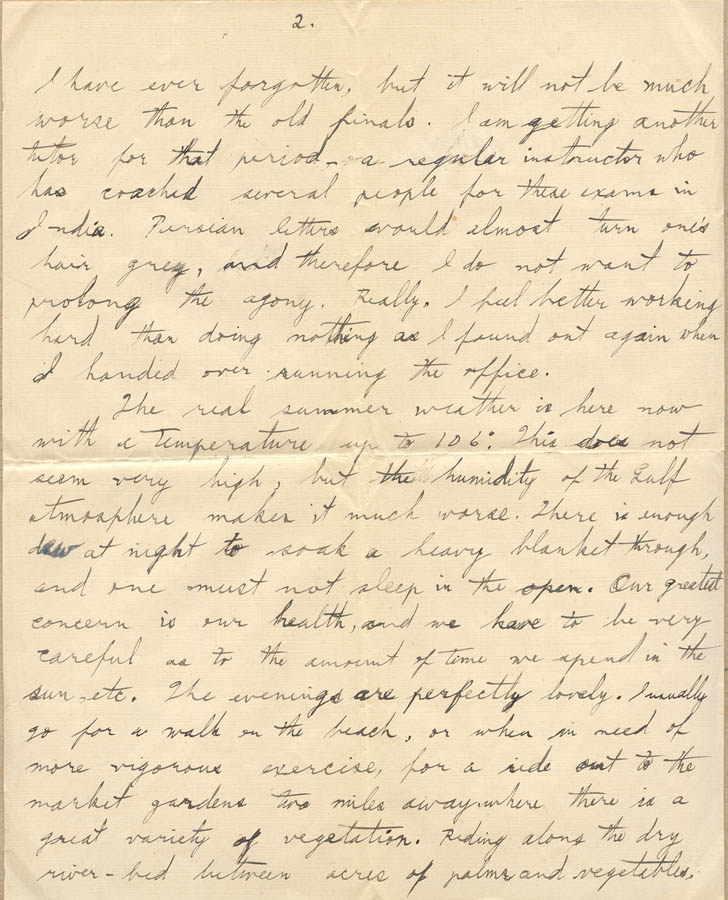 2.
I have ever forgotten, but it will not be much
worse than the old finals. I am getting another
tutor for that period - a regular instructor who
has coached several people for these exams in
India. Persian letters would almost turn one's
hair grey, and therefore I do not want to
prolong the agony. Really, I feel better working
hard than doing nothing as I found out again when
I handed over running the office.
The real summer weather is here now
with a temperature up to 106°. This does not
seem very high, but the humidity of the Gulf
atmosphere makes it much worse. There is enough
dew at night to soak a heavy blanket through,
and one must not sleep in the open. Our greatest
concern is our health, and we have to be very
careful as to the amount of time we spend in the
sun, etc. The evenings are perfectly lovely. I usually
go for a walk on the beach, or when in need of
more vigorous exercise, for a ride out to the
market gardens two miles away where there is a
great variety of vegetation. Riding along the dry
river-bed between acres of palms and vegetables.